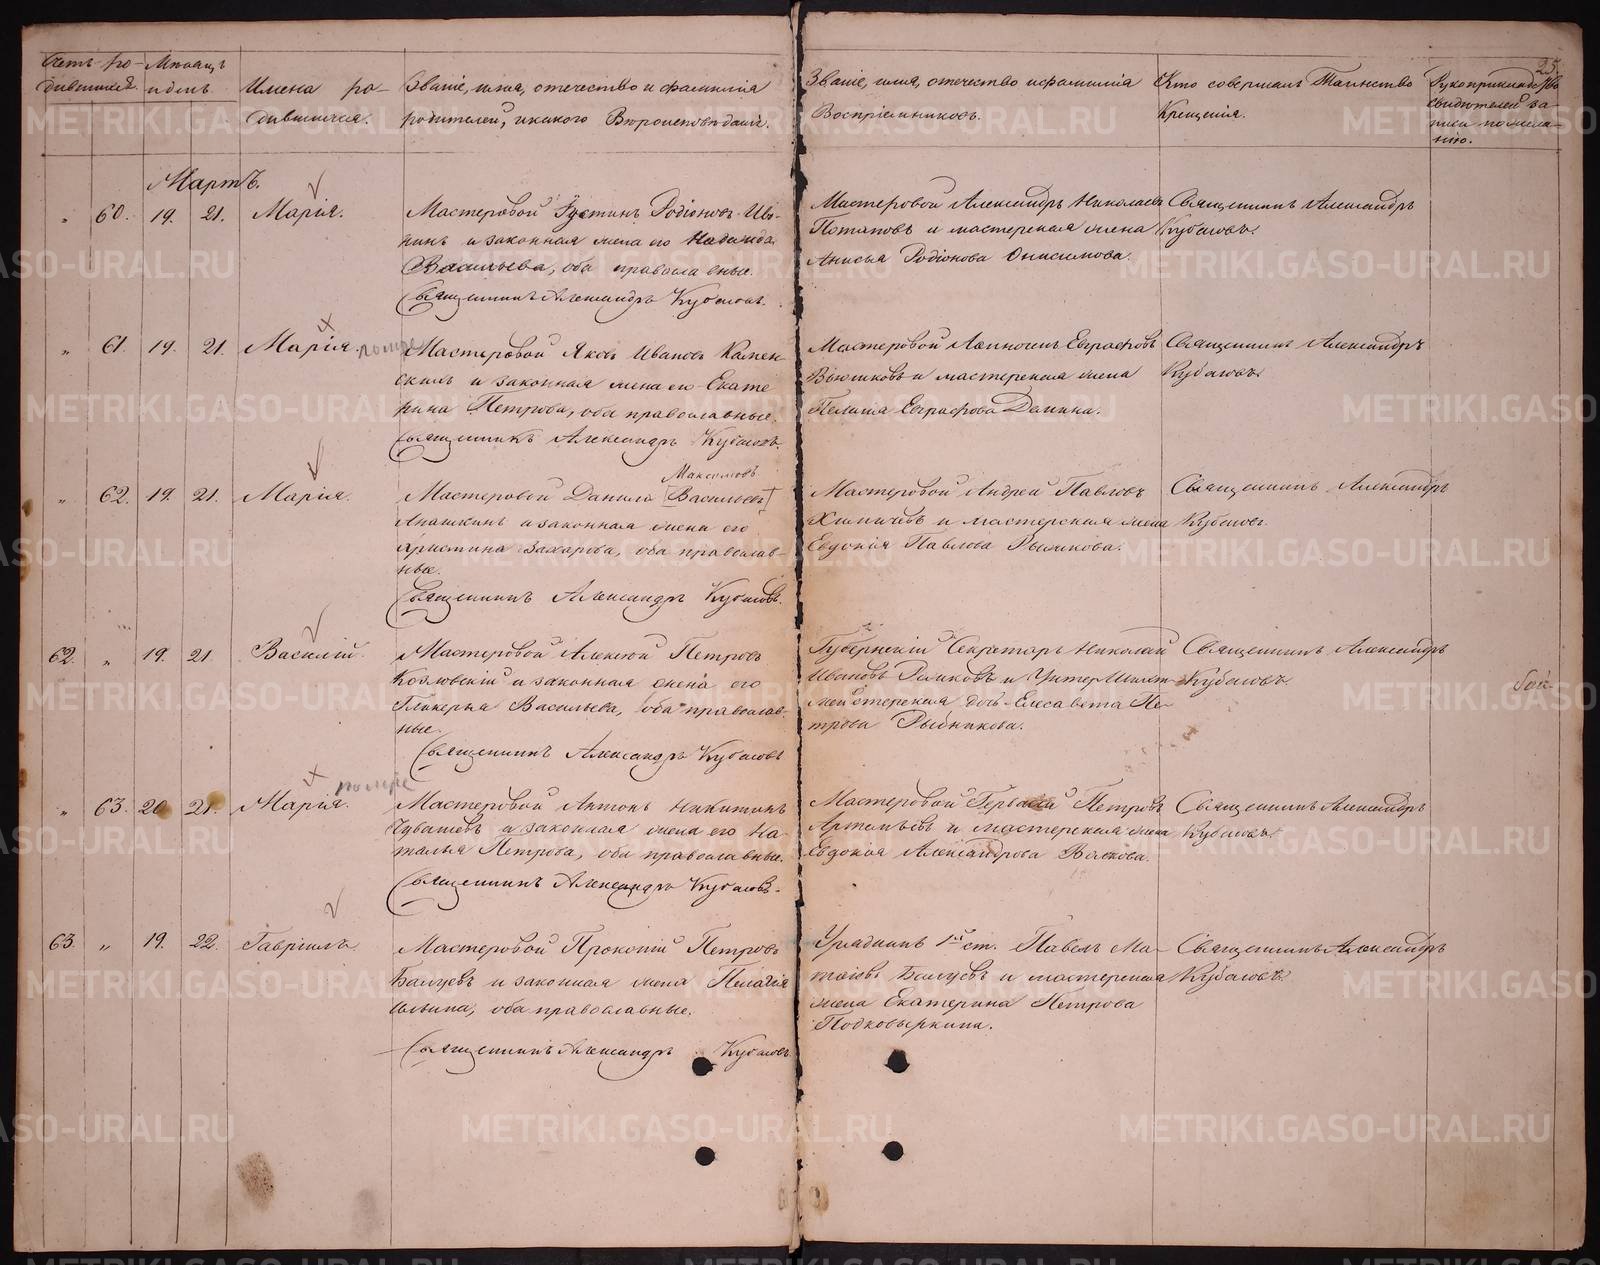 25.
Счетъ ро- Мѣсяцъ
дившихся. и день
Имена ро-
дившихся.
Званіе, имя, отечество и фамилія
родителей, и какого Вѣроисповѣданія.
Званіе, имя, отечество и фамилія
Воспріемниковъ.
Кто совершалъ Таинство
Крещенія.
Рукоприкладство
свидѣтелей за-
писи по жела-
нію.
Мартъ.
" 60. 19. 21. Марія.
Мастеровой Густинъ Родіоновъ
и законная жена его Надежда
Васильева, оба православные.
Священникъ Александръ Кубасовъ.
Мастеровой Александръ Николаевъ
Потаповъ и мастерская жена
Анисья Родіонова Онисимова.
Священникъ Александръ
Кубасовъ.
" 61. 19. 21. Марія. помре
Мастеровой Яковъ Ивановъ Камен-
скихъ и законная жена его Екате
рина Петрова, оба православные.
Священникъ Александръ Кубасовъ.
Мастеровой Евграфовъ
Вьюшковъ и мастерская жена
Пелагія Евграфова Данина.
Священникъ Александръ
Кубасовъ.
" 62. 19. 21. Марія.
Максимовъ
Мастеровой Данила [Васильевъ]
Апашкинъ и законная жена его
Христина Захарова, оба православ-
ные.
Священникъ Александръ Кубасовъ.
Мастеровой Андрей Павловъ
и мастерская жена
Евдокія Павлова Рыжикова.
Священникъ Александръ
Кубасовъ.
62. " 19. 21. Василій.
Мастеровой Алексѣй Петровъ
Козловскій и законная жена его
Гликерья Васильева, оба православ-
ные.
Священникъ Александръ Кубасовъ
Губернскій Секретарь Николай
Ивановъ и Унтер Шихт-
мейстерская дочь Елисавета Пе-
трова Рыбникова.
Священникъ Александръ
Кубасовъ.
" 63. 20 21. Марія. помре
Мастеровой Антонъ Никитинъ
Чувашевъ и законная жена его На-
талья Петрова, оба православные.
Священникъ Александръ Кубасовъ.
Мастеровой Гервасій Петровъ
Артемьевъ и мастерская жена
Евдокія Александрова Волкова.
Священникъ Александръ
Кубасовъ.
63. " 19. 22. Гавріилъ.
Мастеровой Прокопій Петровъ
Балуевъ и законная жена Пелагія
Ильина, оба православные.
Священникъ Александръ Кубасовъ.
Урядникъ 1й ст. Павелъ Ма-
твѣевъ Балуевъ и мастерская
жена Екатерина Петрова
Подковыркина.
Священникъ Александръ
Кубасовъ.
METRIKI.GASO-URAL.RU